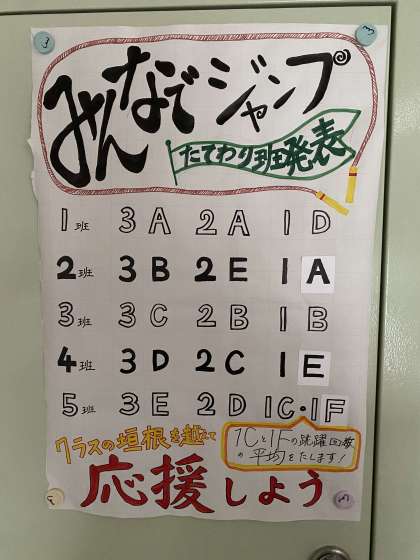 みんなでジャンプ
たてわり班発表
1班 3A 2A 1D
2班 3B 2E 1A
3班 3C 2B 1B
4班 3D 2C 1E
5班 3E 2D 1C・1F
クラスの垣根を越えて
1Cと1Fの跳躍回数
の平均をたします!
応援しよう